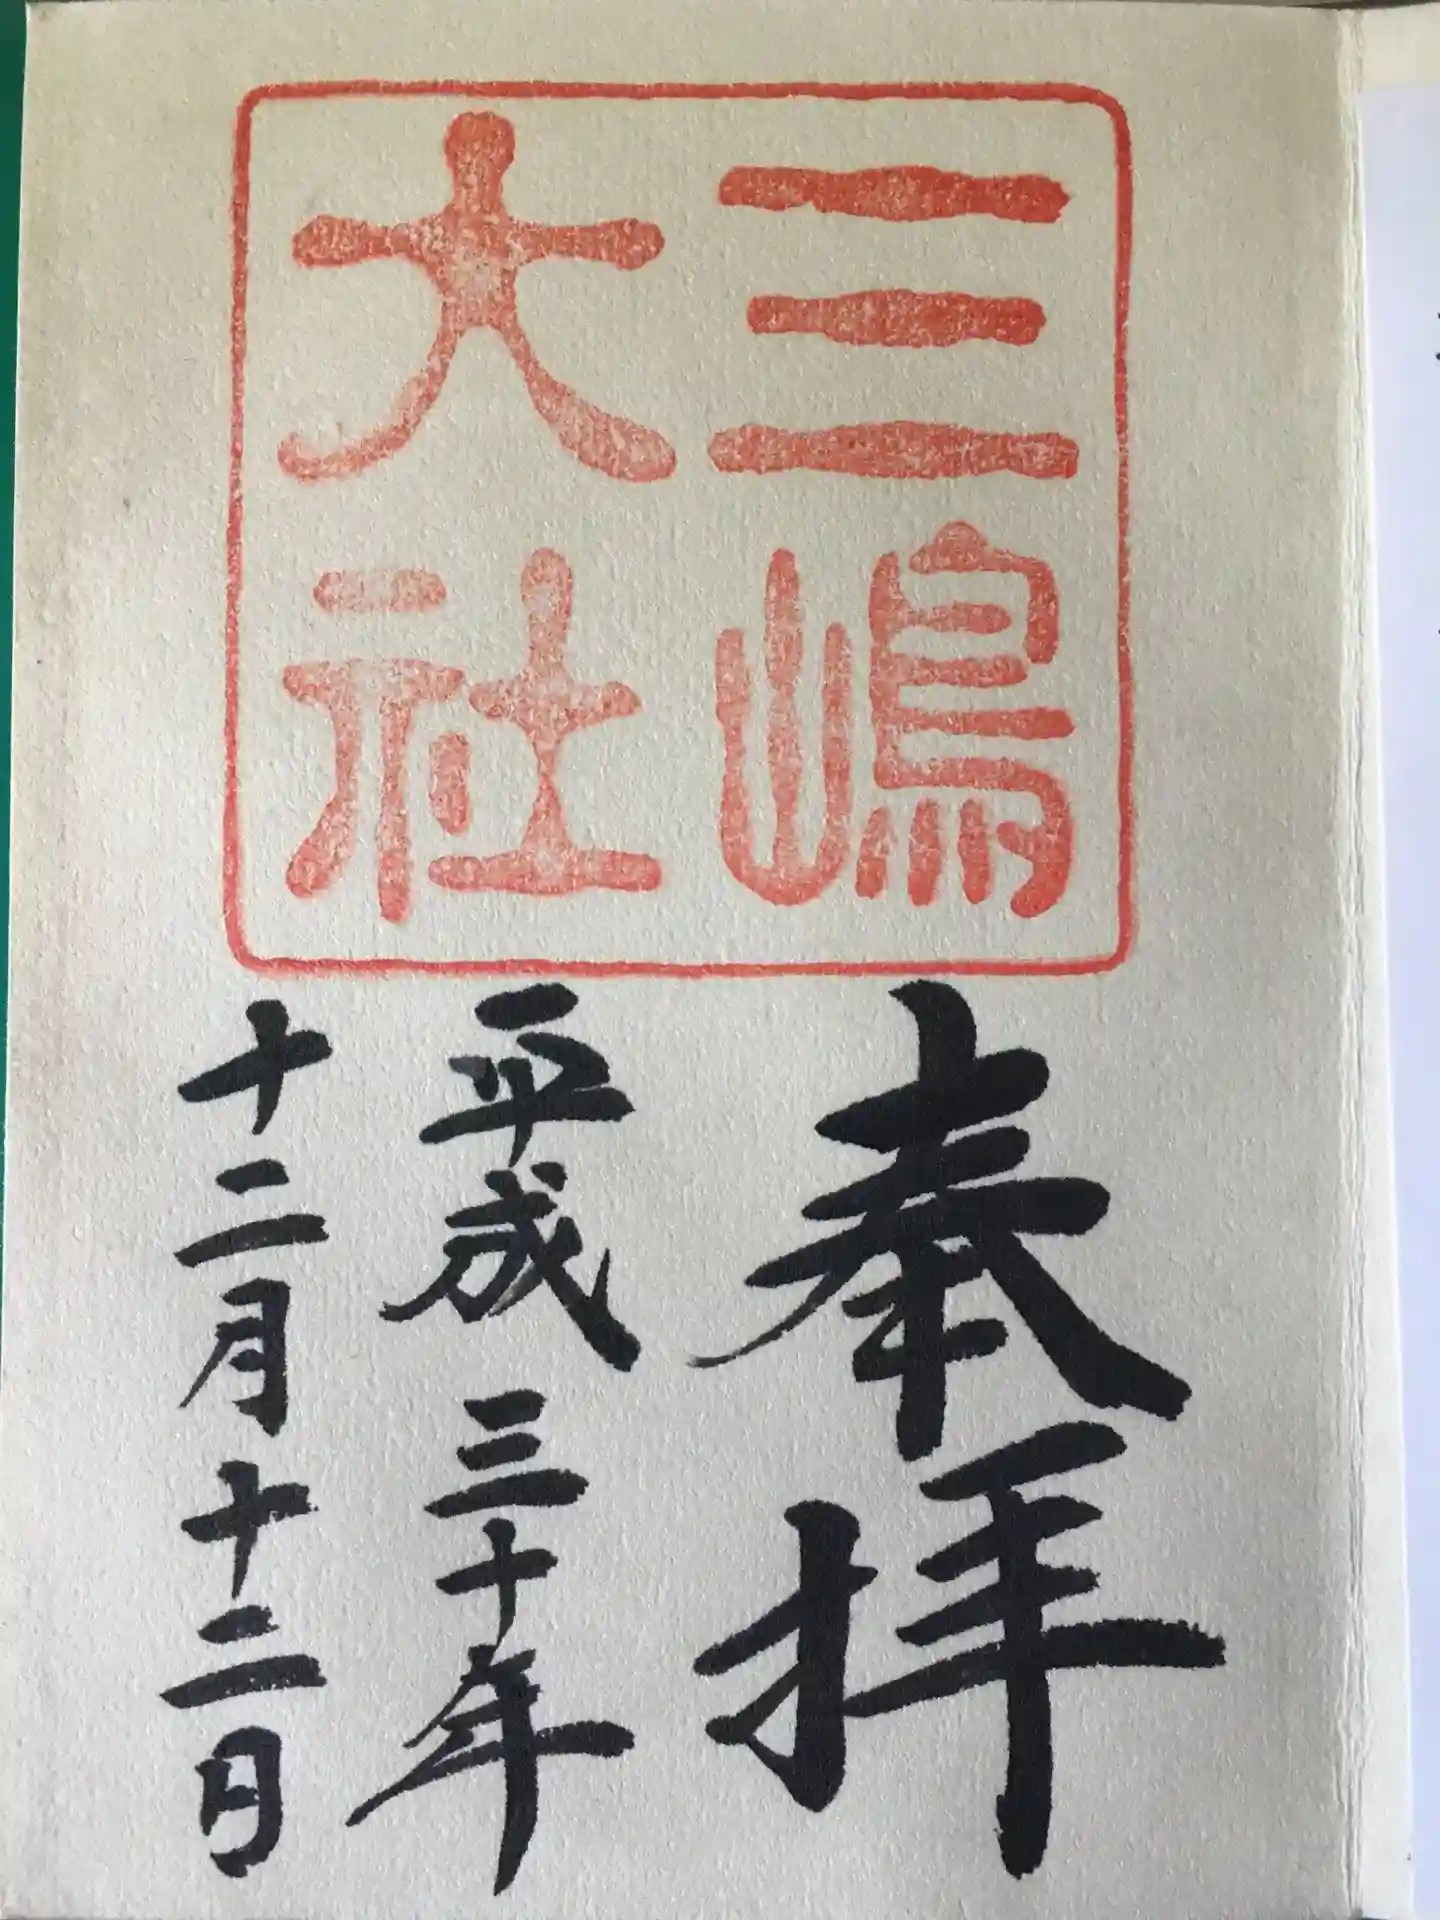 三嶋
大社
奉拝
平成三十年
十二月十二日